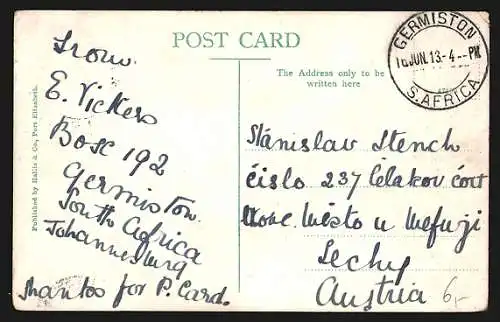 POST CARD
The Address only to be
written here
Published by Hallis & Co., Port Elizabeth.
GERMISTON
16 JUN. 13 · 4 - PM
S. AFRICA
From
E. Vickers
Box 192
Germiston
South Africa
Johannesburg
Thanks for P. Card.
Stanislav Stench
číslo 237 Čelakov
Místo u
Čechy
Austria 6,-